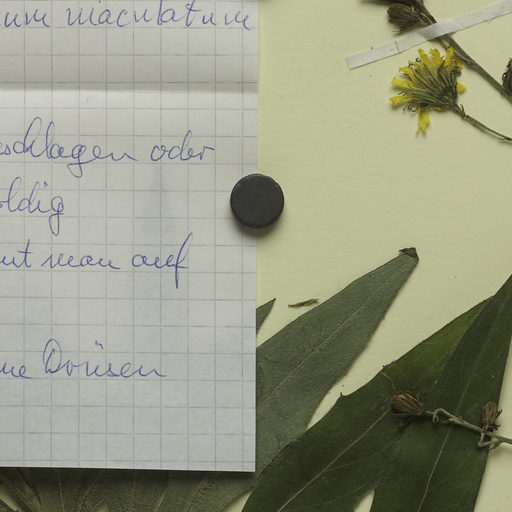 um maculatum
schlagen oder
oldig
ut man auf
ne Dorüsen